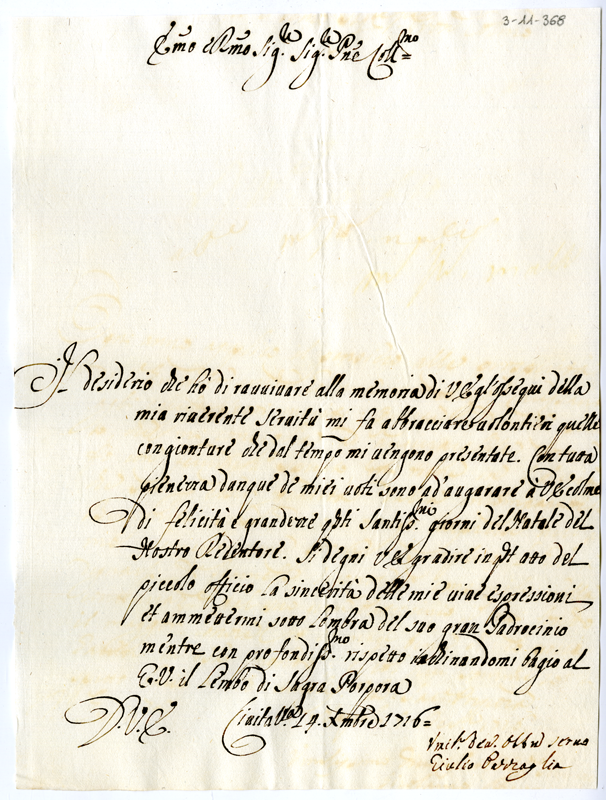 3-11-368
Em̃o e Rm̃o Sig.re Sig.re Pñe Coll.mo
Il desiderio che hò di ravvivare alla memoria di V E gl'ossequi della
mia riverente servitù mi fa abbracciare volontieri quelle
congionture che dal tempo mi vengono presentate. Con tutta
pienezza dunque de miei voti sono ad augurare à V E colme
di felicità e grandezze qsti Santiss.mi giorni del Natale del
Nostro Redentore. Si degni V E gradire in qst atto del
piccolo officio la sincerità delle mie vive espressioni
et ammettermi sotto Lombra del suo gran Padrocinio
mentre con profondiss.mo rispetto inclinandomi bagio al
E.V. il Lembo di Sagra Porpora
D.V.E. Civita Va 19. Xmbre 1716=
Vmil.o dev. Obbñ servo
Giulio